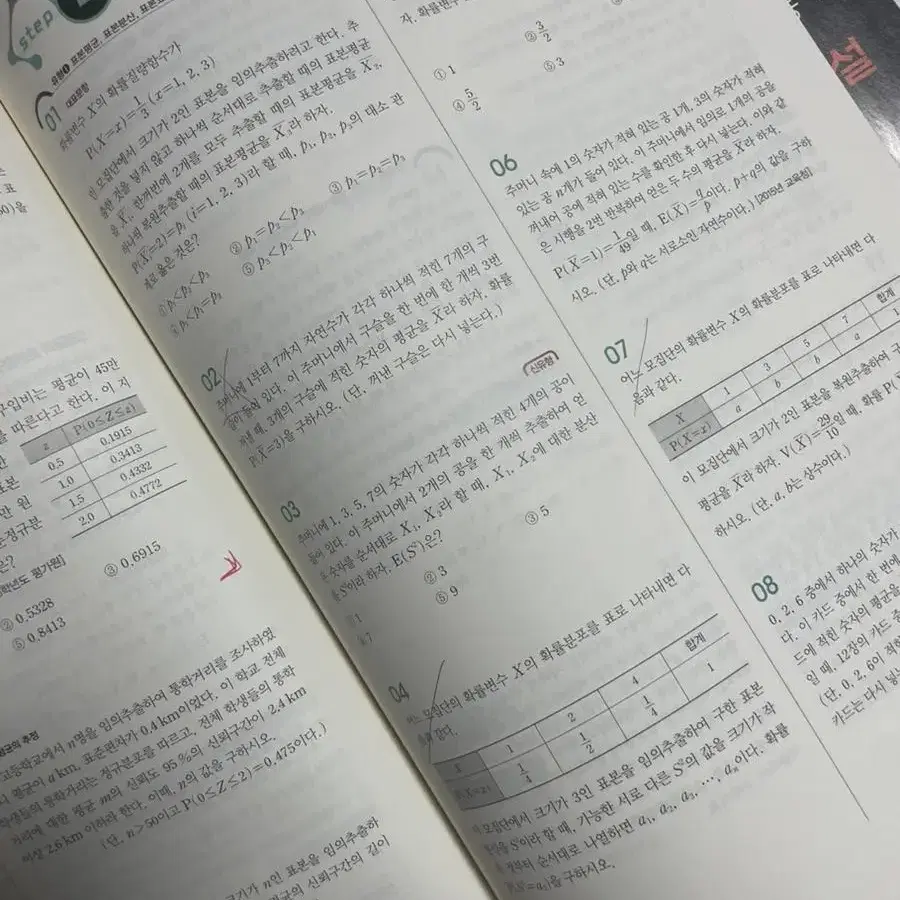 step
유형 1 표본평균, 표본분산, 표본표
01
대표문항
확률변수 X의 확률질량함수가
P(X=x)=1/3 (x=1, 2, 3)
인 모집단에서 크기가 2인 표본을 임의추출하려고 한다. 추
출한 것을 넣지 않고 하나씩 순서대로 추출할 때의 표본평균
을 X̄₁, 한꺼번에 2개를 모두 추출할 때의 표본평균을 X̄₂,
하나씩 복원추출할 때의 표본평균을 X̄₃라 하자.
P(X̄ᵢ=2)=pᵢ (i=1, 2, 3)라 할 때, p₁, p₂, p₃의 대소 관
계로 옳은 것은?
① p₁<p₂<p₃ ② p₁=p₂<p₃ ③ p₁=p₂=p₃
④ p₃<p₁=p₂ ⑤ p₃<p₂<p₁
02
주머니에 1부터 7까지 자연수가 각각 하나씩 적힌 7개의 구
슬이 들어 있다. 이 주머니에서 구슬을 한 번에 한 개씩 3번
꺼낼 때, 3개의 구슬에 적힌 숫자의 평균을 X̄라 하자. 확률
P(X̄=3)을 구하시오. (단, 꺼낸 구슬은 다시 넣는다.)
신유형
03
주머니에 1, 3, 5, 7의 숫자가 각각 하나씩 적힌 4개의 공이
들어 있다. 이 주머니에서 2개의 공을 한 개씩 추출하여 얻
은 숫자를 순서대로 X₁, X₂라 할 때, X₁, X₂에 대한 분산
을 S²이라 하자. E(S²)은?
① 1 ② 3 ③ 5
④ 7 ⑤ 9
04
어느 모집단의 확률변수 X의 확률분포를 표로 나타내면 다
음과 같다.
X 1 2 4 합계
P(X=x) 1/4 1/2 1/4 1
이 모집단에서 크기가 3인 표본을 임의추출하여 구한 표본
분산을 S²이라 할 때, 가능한 서로 다른 S²의 값을 크기가 작
은 것부터 순서대로 나열하면 a₁, a₂, a₃, …, aₙ이다. 확률
P(S²=a₃)을 구하시오.
자. 확률변수
① 1 ② 3/2 ③
④ 5/2 ⑤ 3
06
주머니 속에 1의 숫자가 적혀 있는 공 1개, 3의 숫자가 적혀
있는 공 n개가 들어 있다. 이 주머니에서 임의로 1개의 공을
꺼내어 공에 적혀 있는 수를 확인한 후 다시 넣는다. 이와 같
은 시행을 2번 반복하여 얻은 두 수의 평균을 X̄라 하자.
P(X̄=1)=1/49일 때, E(X̄)=q/p이다. p+q의 값을 구하
시오. (단, p와 q는 서로소인 자연수이다.) [2015년 교육청]
07
어느 모집단의 확률변수 X의 확률분포를 표로 나타내면 다
음과 같다.
X 1 3 5 7 합계
P(X=x) a b b a 1
이 모집단에서 크기가 2인 표본을 복원추출하여 구
평균을 X̄라 하자. V(X̄)=29/10일 때, 확률 P(X̄
하시오. (단, a, b는 상수이다.)
08
0, 2, 6 중에서 하나의 숫자가
다. 이 카드 중에서 한 번에
드에 적힌 숫자의 평균을
일 때, 12장의 카드 중
(단, 0, 2, 6이 적혀
카드는 다시 넣는
설
구입비는 평균이 45만
를 따른다고 한다. 이 지
z P(0≤Z≤z)
0.5 0.1915
1.0 0.3413
1.5 0.4332
2.0 0.4772
표본
만 원
준정규분
은?
학년도 평가원]
② 0.5328 ③ 0.6915
⑤ 0.8413
평균의 추정
고등학교에서 n명을 임의추출하여 통학거리를 조사하였
니 평균이 a km, 표준편차가 0.4 km이었다. 이 학교 전체
학생들의 통학거리는 정규분포를 따르고, 전체 학생들의 통학
거리에 대한 평균 m의 신뢰도 95 %의 신뢰구간이 2.4 km
이상 2.6 km 이하라 한다. 이때, n의 값을 구하시오.
(단, n>50이고 P(0≤Z≤2)=0.475이다.)
크기가 n인 표본을 임의추출하
평균의 신뢰구간의 길이